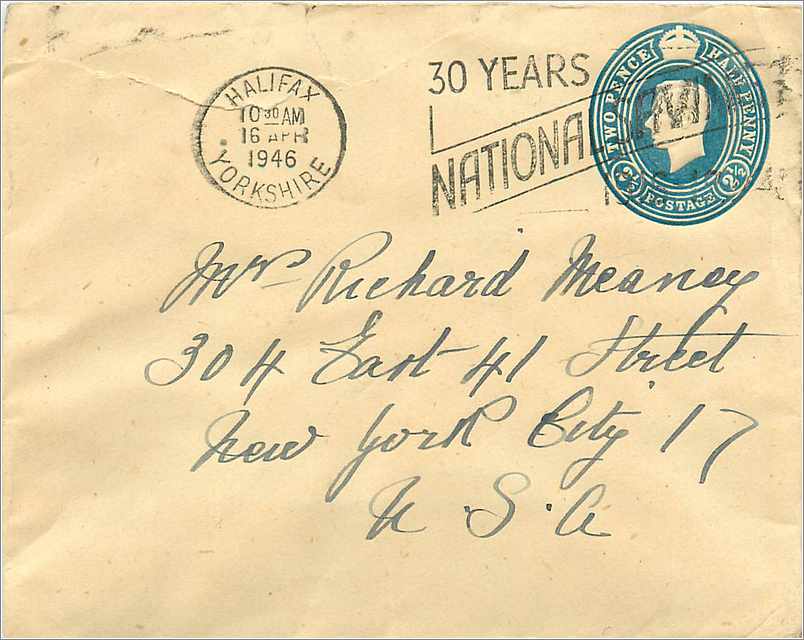 HALIFAX
10 30 AM
16 APR
1946
YORKSHIRE
30 YEARS
NATIONAL
TWO PENCE HALF PENNY
2½ POSTAGE 2½
Mrs Richard Meaney
304 East 41 Street
New York City 17
U.S.A